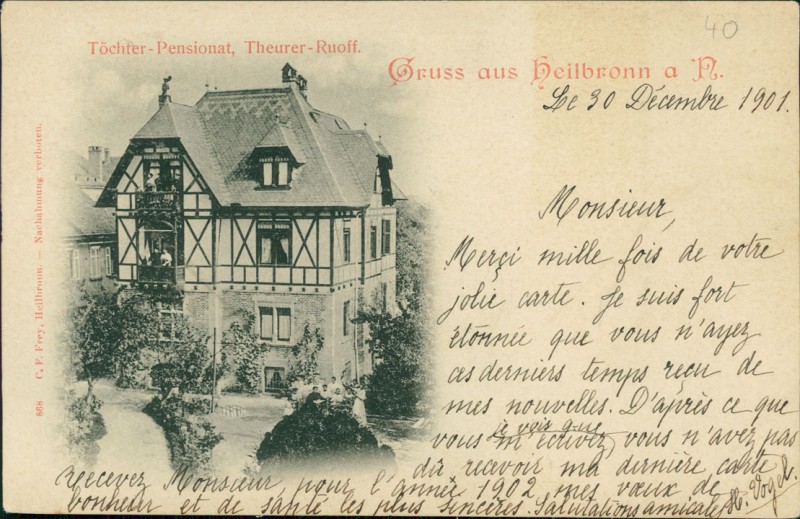 40
Töchter-Pensionat, Theurer-Ruoff.
Gruss aus Heilbronn a N.
Le 30 Décembre 1901.
868 C. F. Frey, Heilbronn. — Nachahmung verboten.
Monsieur,
Merçi mille fois de votre
jolie carte. Je suis fort
étonnée que vous n'ayez
ces derniers temps reçu de
mes nouvelles. D'après ce que
je vois que
vous m'écrivez vous n'avez pas
dû recevoir ma dernière carte
Recevez Monsieur, pour l'année 1902 mes vœux de
bonheur et de santé les plus sincères. Salutations amicales
H. Vogel.